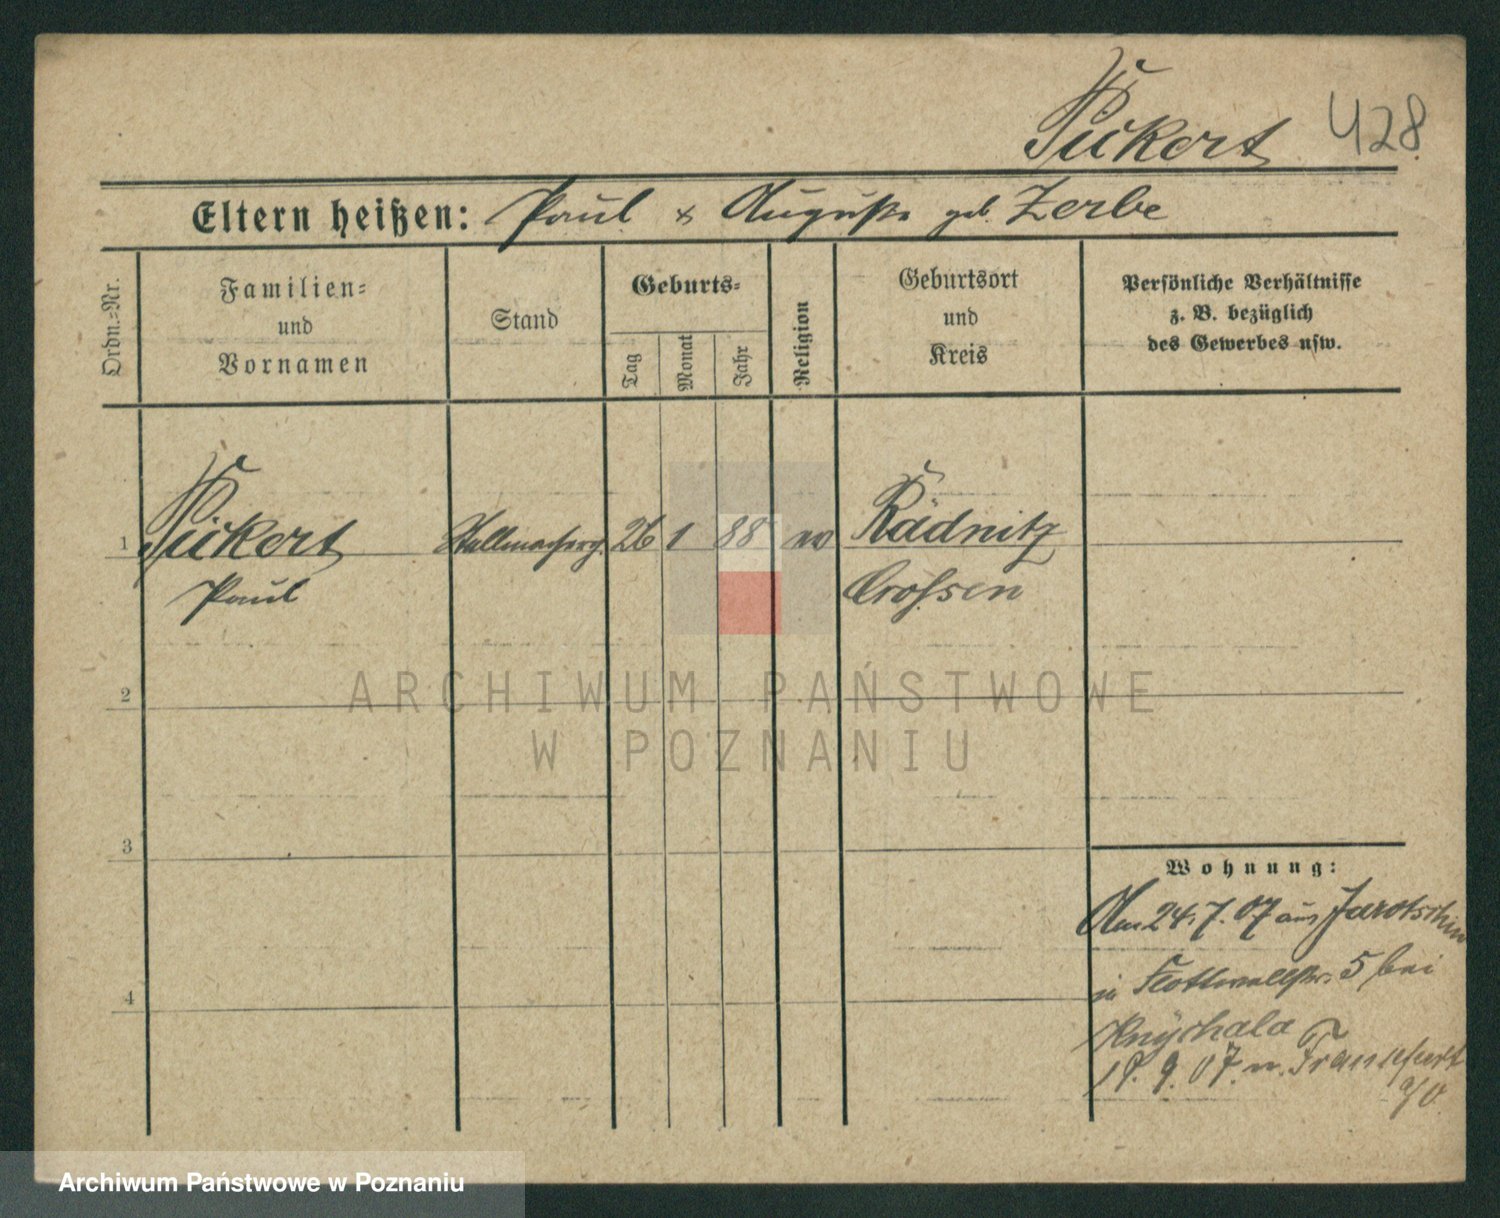 Pickert 428
Eltern heißen: Paul & Auguste geb. Zerbe
Ordn.-Nr.
Familien-
und
Vornamen
Stand
Geburts-
Tag
Monat
Jahr
Religion
Geburtsort
und
Kreis
Persönliche Verhältnisse
z. B. bezüglich
des Gewerbes usw.
1 Pickert Stellmacherg. 26 1 88 Rädnitz
Paul Crossen
2
ARCHIWUM PAŃSTWOWE
W POZNANIU
3
Wohnung:
Am 24.7.07 aus Jarotschin
in 5 bei
4
9.07. n. Frankfurt
a/O.
Archiwum Państwowe w Poznaniu